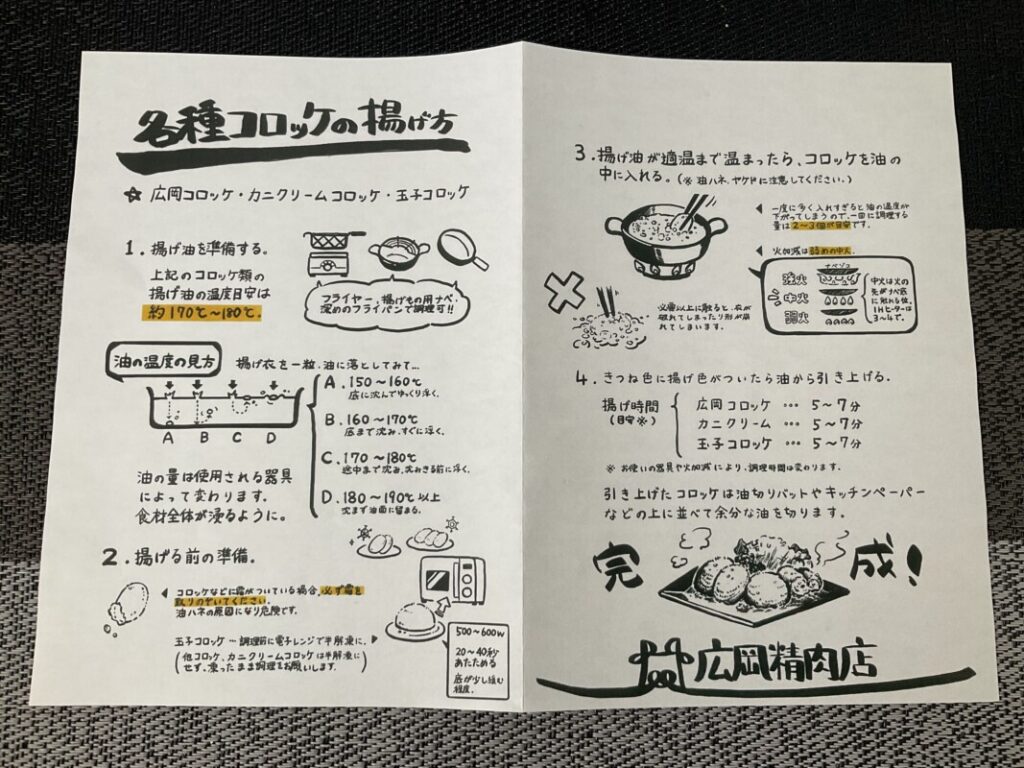 各種コロッケの揚げ方
☆ 広岡コロッケ・カニクリームコロッケ・玉子コロッケ
1. 揚げ油を準備する。
上記のコロッケ類の
揚げ油の温度目安は
約170℃〜180℃。
フライヤー、揚げもの用ナベ、
深めのフライパンで調理可!!
油の温度の見方
揚げ衣を一粒、油に落としてみて…
A B C D
A. 150〜160℃
底に沈んでゆっくり浮く。
B. 160〜170℃
底まで沈み、すぐに浮く。
C. 170〜180℃
途中まで沈み、沈みきる前に浮く。
D. 180〜190℃以上
沈まず油面に留まる。
油の量は使用される器具
によって変わります。
食材全体が浸るように。
2. 揚げる前の準備。
◀ コロッケなどに霜がついている場合、必ず霜を
取りのぞいてください。
油ハネの原因になり危険です。
玉子コロッケ…調理前に電子レンジで半解凍に。▶
(他コロッケ、カニクリームコロッケは半解凍に
せず、凍ったまま調理をお願いします。)
500〜600W
20〜40秒
あたためる
底が少し緩む
程度。
3. 揚げ油が適温まで温まったら、コロッケを油の
中に入れる。(※ 油ハネ、ヤケドに注意してください。)
◀ 一度に多く入れすぎると油の温度が
下がってしまうので、一回に調理する
量は2〜3個が目安です。
◀ 火加減は弱めの中火。
ナベゾコ
強火
中火
弱火
中火は火の
先がナベ底
に触れる位。
IHヒーターは
3〜4で。
必要以上に触ると、衣が
破れてしまったり形が崩
れてしまいます。
4. きつね色に揚げ色がついたら油から引き上げる。
揚げ時間
(目安※)
広岡コロッケ … 5〜7分
カニクリーム … 5〜7分
玉子コロッケ … 5〜7分
※ お使いの器具や火加減により、調理時間は変わります。
引き上げたコロッケは油切りバットやキッチンペーパー
などの上に並べて余分な油を切ります。
完成!
広岡精肉店